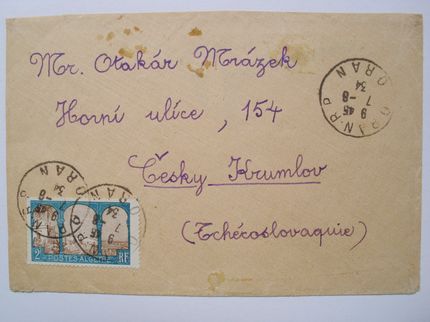 Mr. Otakár Mrázek
Horní ulice, 154
Český Krumlov
(Tchécoslovaquie)
ORAN R.P
9 45
7 -8
34
ORAN
2F POSTES ALGERIE RF